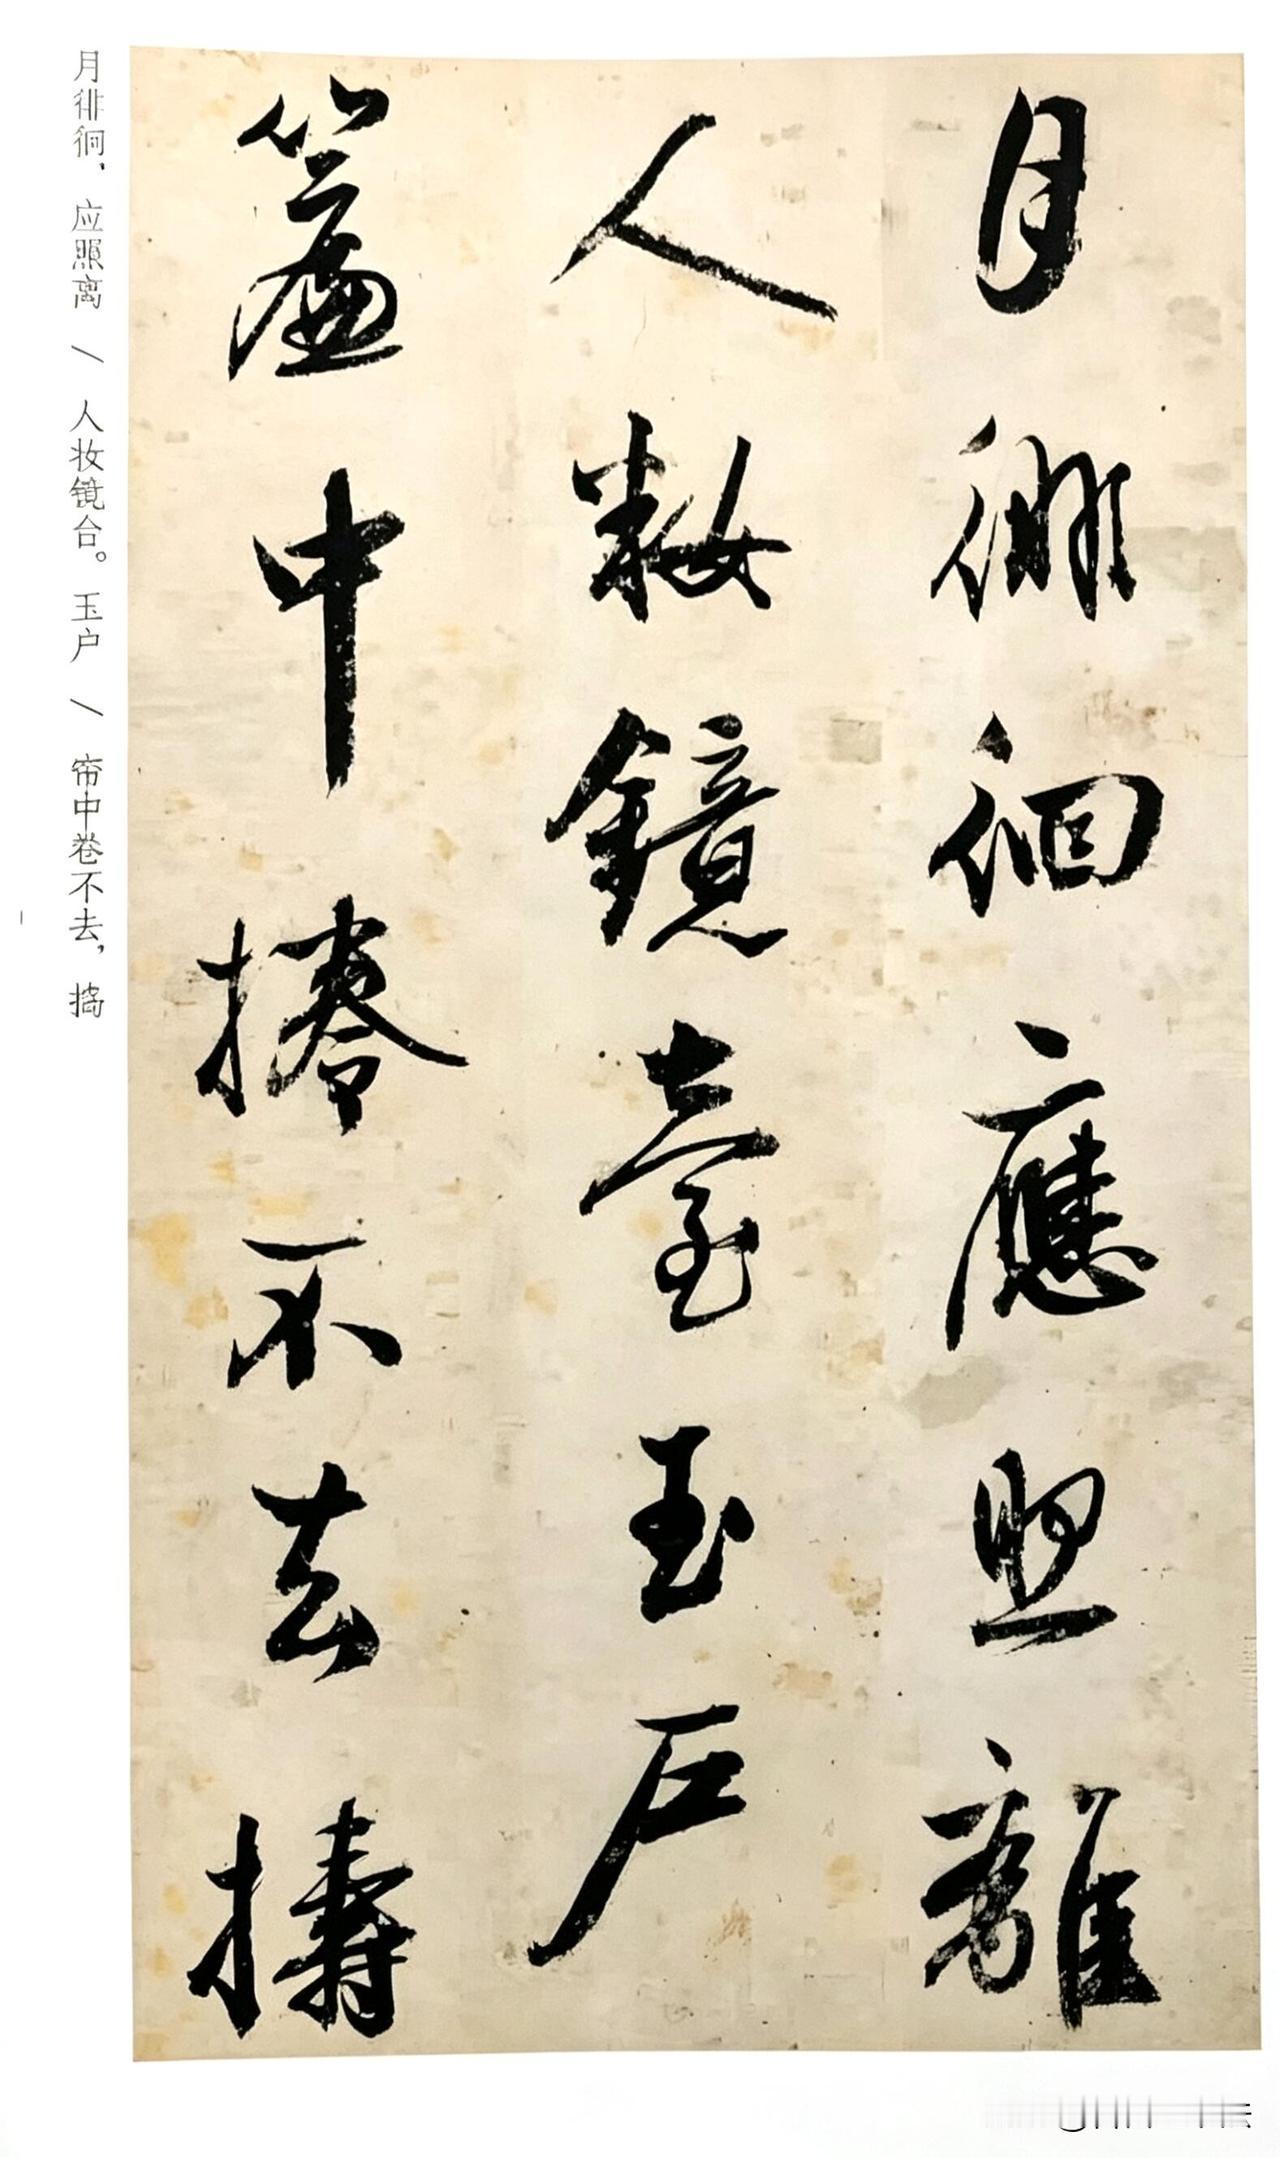 月徘徊應照離
人妝鏡臺玉戶
簾中捲不去擣
月徘徊，应照离 / 人妆镜台。玉户 / 帘中卷不去，捣